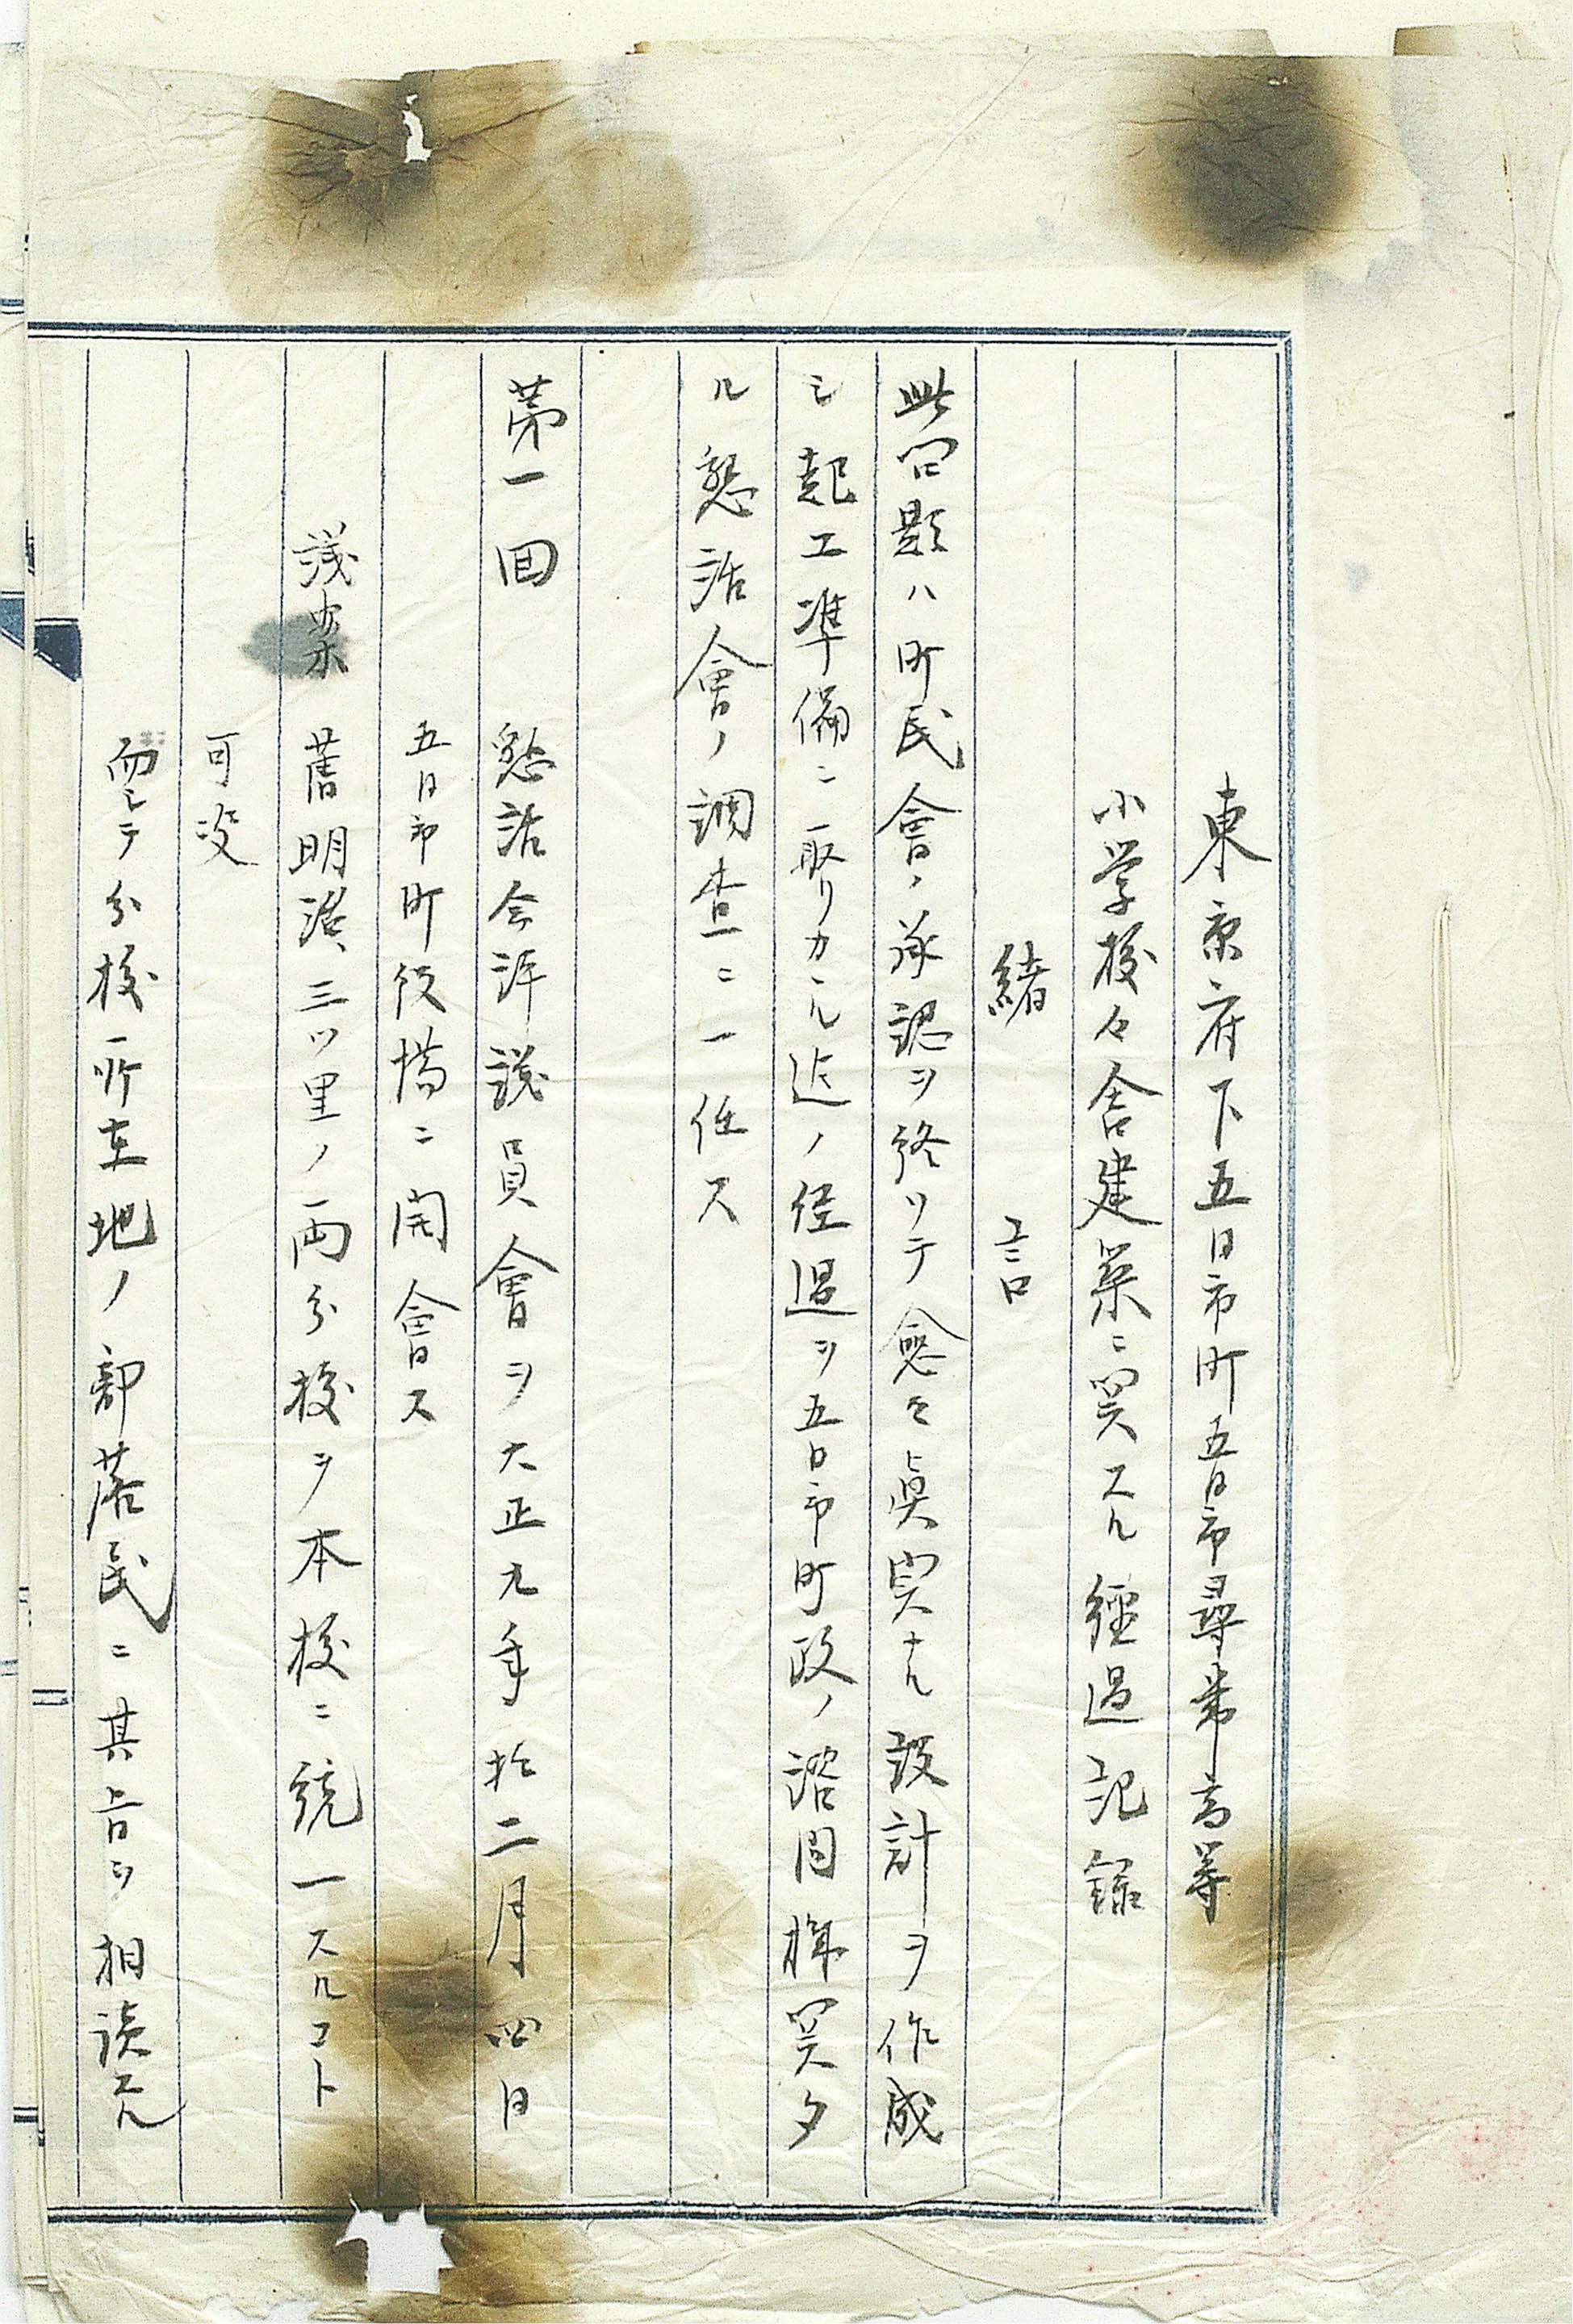 東京府下五日市町五日市尋常高等
小学校々舎建築ニ関スル経過記録
緒言
此問題ハ町民會ノ承認ヲ終リテ愈々眞実ナル設計ヲ作成
シ起工準備ニ取リカヽル迄ノ経過ヲ五日市町政ノ諮問機関タ
ル懇話會ノ調査ニ一任ス
第一回 懇話会評議員會ヲ大正九年拾二月四日
五日市町役場ニ開會ス
議案 舊明治、三ツ里ノ両分校ヲ本校ニ統一スルコト
可決
而シテ分校所在地ノ部落民ニ其旨ヲ相談スル